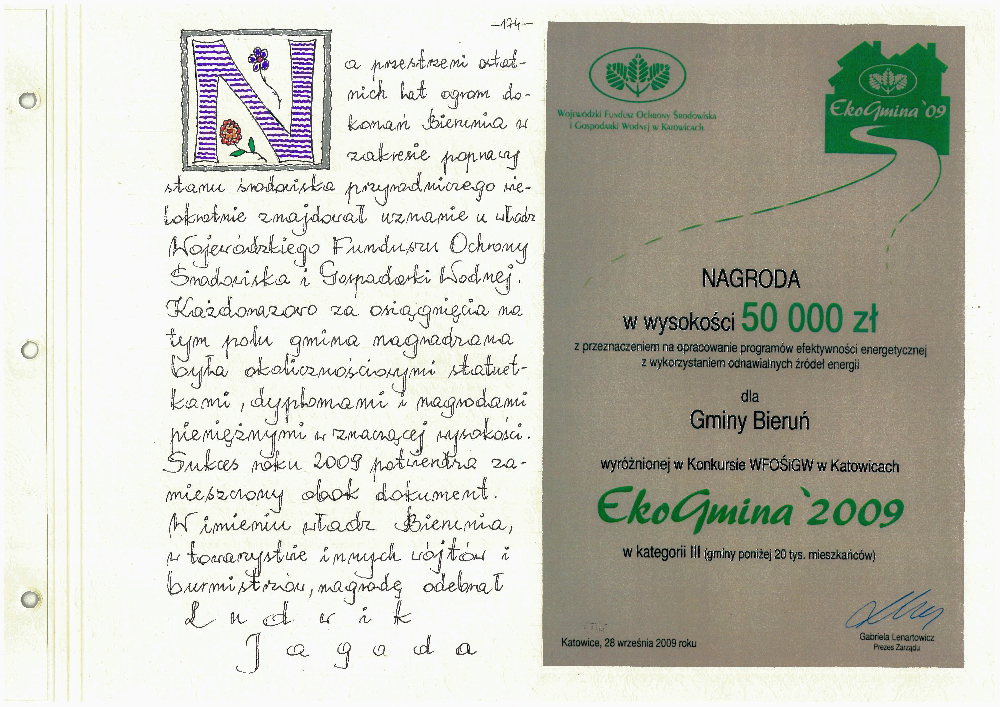 —174—
Na przestrzeni ostat-
nich lat ogrom do-
konań Bierunia w
zakresie poprawy
stanu środowiska przyrodniczego wie-
lokrotnie znajdował uznanie u władz
Wojewódzkiego Funduszu Ochrony
Środowiska i Gospodarki Wodnej.
Każdorazowo za osiągnięcia na
tym polu gmina nagradzana
była okolicznościowymi statuet-
kami, dyplomami i nagrodami
pieniężnymi w znaczącej wysokości.
Sukces roku 2009 potwierdza za-
mieszczony obok dokument.
W imieniu władz Bierunia,
w towarzystwie innych wójtów i
burmistrzów, nagrodę odebrał
Ludwik
Jagoda
Wojewódzki Fundusz Ochrony Środowiska
i Gospodarki Wodnej w Katowicach
EkoGmina`09
NAGRODA
w wysokości 50 000 zł
z przeznaczeniem na opracowanie programów efektywności energetycznej
z wykorzystaniem odnawialnych źródeł energii
dla
Gminy Bieruń
wyróżnionej w Konkursie WFOŚiGW w Katowicach
EkoGmina`2009
w kategorii III (gminy poniżej 20 tys. mieszkańców)
Gabriela Lenartowicz
Prezes Zarządu
Katowice, 28 września 2009 roku